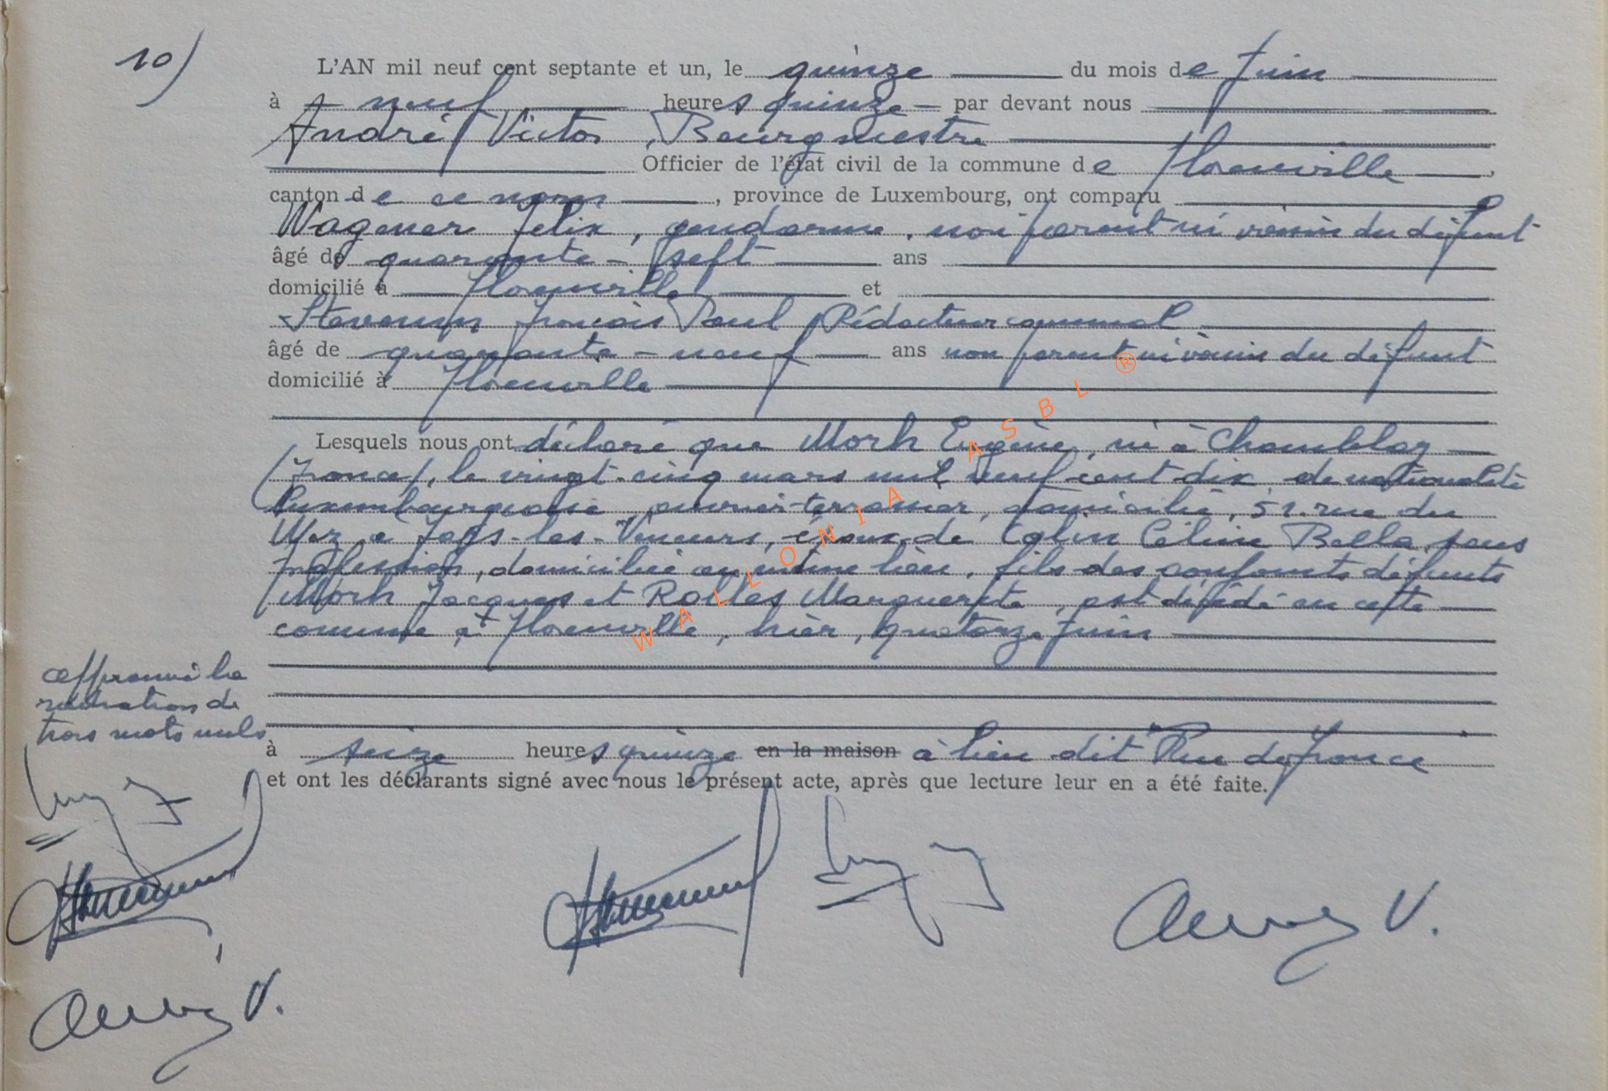 10)
L'AN mil neuf cent septante et un, le quinze du mois de Juin
à neuf heures quinze par devant nous
André Victor, Bourgmestre
Officier de l'état civil de la commune de Florenville
canton de ce nom, province de Luxembourg, ont comparu
Wagener Félix, gendarme, non parent ni voisin du défunt
âgé de quarante-sept ans
domicilié à Florenville et
François Paul Rédacteur communal
âgé de quarante-neuf ans non parent ni voisin du défunt
domicilié à Florenville
Lesquels nous ont déclaré que Morh Eugène, né à Chamblay
(France), le vingt-cinq mars mil neuf cent dix de nationalité
luxembourgeoise, ouvrier-terrassier, domicilié, 51 rue du
à les-, époux de Colin Céline Bella, sans
profession, domiciliée au même lieu, fils des conjoints défunts
Morh Jacques et Rolles Marguerite, est décédé en cette
commune, à Florenville, hier, quatorze juin
approuvé la
de
trois mots nuls
à seize heures quinze en la maison à lieu dit "Rue de France"
et ont les déclarants signé avec nous le présent acte, après que lecture leur en a été faite.
V.
V.
WALLONIA ASBL ®